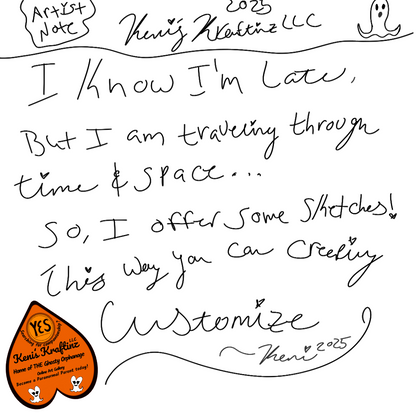 Artist
Note
2025
Keni's Kraftinz LLC
I Know I'm Late,
But I am traveling through
time & space...
So, I offer some sketches!
This way you can creeping
Customize
~Keni 2025
YES
Keni's Kraftinz LLC
Home of THE Ghosty Orphanage
Online Art Gallery
Become a Paranormal Parent today!